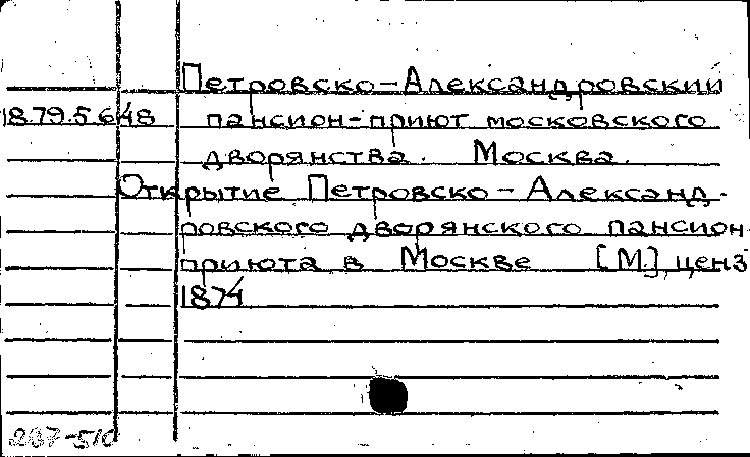 Петровско-Александровский
18.79.5.648 пансион-приют московского
дворянства. Москва.
Открытие Петровско-Александ-
ровского дворянского пансион-
приюта в Москве [М.], ценз
1874
237-510